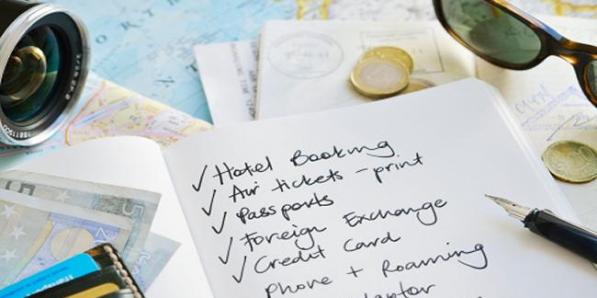 ✓ Hotel Booking
✓ Air tickets - print
✓ Passports
✓ Foreign Exchange
✓ Credit Card
Phone + Roaming